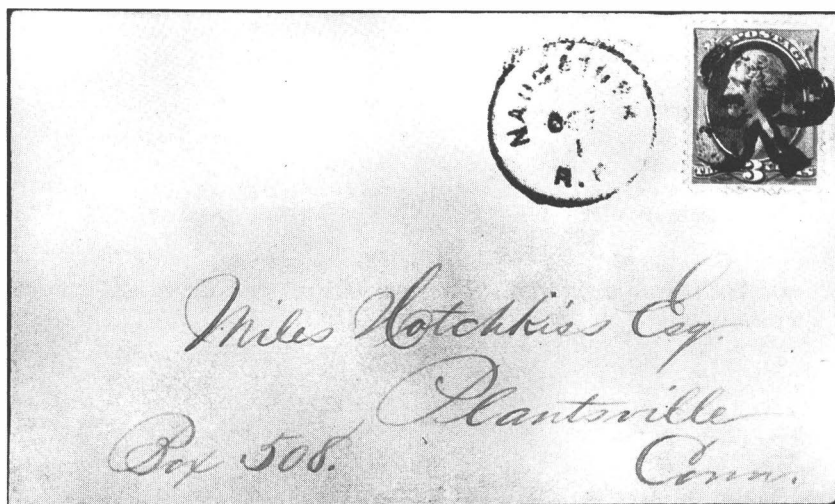 NAUGATUCK
OC
1
R.R.
POSTAGE
3
Miles Hotchkiss Esq.
Plantsville
Box 508.
Conn.